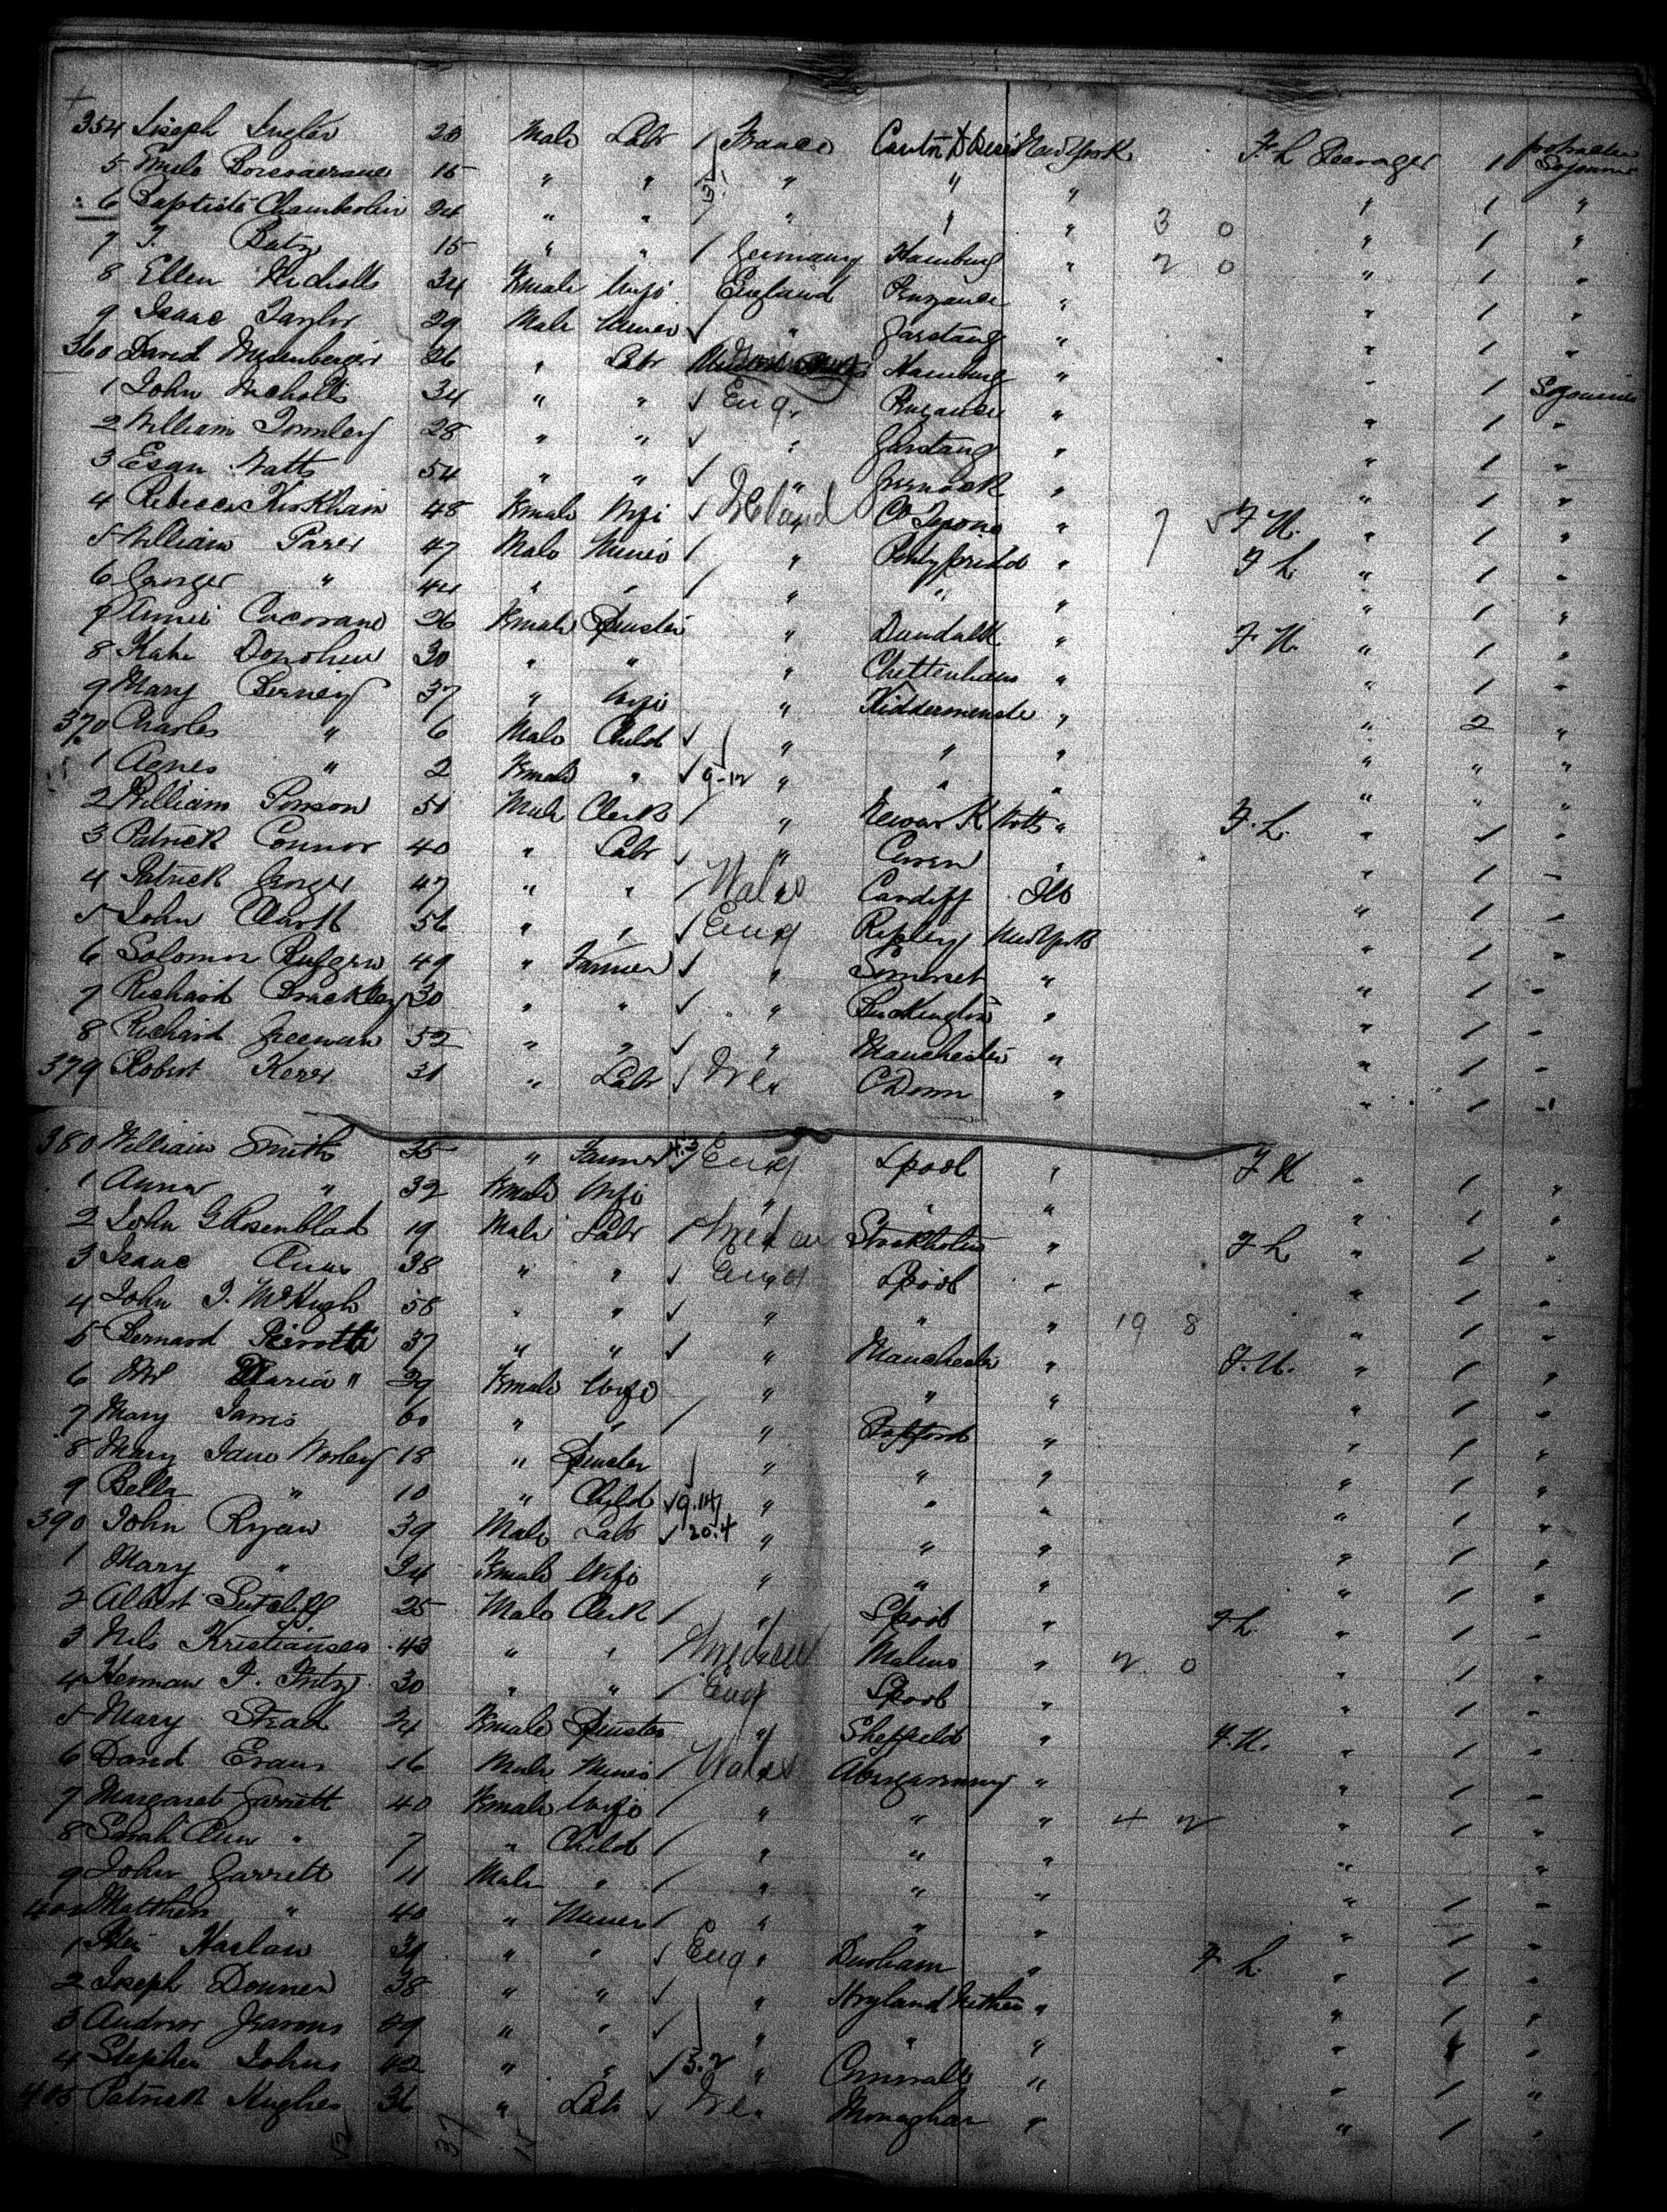 354 Joseph 23 Male Labr France New York F. L Steerage 1 Sojourner
5 Emile 15 " " " " " " 1 "
6 Baptiste Chamberlin 24 " " " " " 3 0 " 1 "
7 J. Batz 15 " " Germany Hamburg " 2 0 " 1 "
8 Ellen Nicholls 34 Female Wife England Penzance " " 1 "
9 Isaac Taylor 29 Male Miner " Garstang " " 1 "
360 David 26 " Labr Hamburg " " 1 Sojourner
1 John Nicholls 34 " " Eng. Penzance " " 1 "
2 William Tomley 28 " " " Garstang " " 1 "
3 Esau Watts 54 " " " Greenock " " 1 "
4 Rebecca Kirkham 48 Female Wife Ireland Co Tyrone " 7 5 F U. " 1 "
5 William 47 Male Miner " Pontypridd " F L " 1 "
6 " 44 " " " " " " 1 "
7 Annie Cocorane 26 Female Spinster " Dundalk " F. U. " 1 "
8 Kate Donohue 30 " " " Cheltenham " " 1 "
9 Mary Berney 37 " Wife " Kidderminster " " 2 "
370 Charles " 6 Male Child " " " " " "
1 Agnes " 2 Female " 9-12 " " " " " "
2 William 51 Male Clerk " Newark Notts " F. L. " 1 "
3 Patrick Connor 40 " Labr " " " 1 "
4 Patrick 47 " " Wales Cardiff Do " 1 "
5 John Clark 56 " " Eng Ripley New York " 1 "
6 Solomon 49 " Farmer " Somerset " " 1 "
7 Richard Brackley 30 " " " " " 1 "
8 Richard 52 " " " Manchester " " 1 "
379 Robert Kerr 31 " Labr Ire. C Down " " 1 "
380 William Smith 35 " Farmer 4.3 Eng L'pool " F U " 1 "
1 Anna " 32 Female Wife " " " " 1 "
2 John G Rosenblad 19 Male Labr Sweden Stockholm " F L " 1 "
3 Isaac 38 " " Eng L'pool " " 1 "
4 John J. McHugh 58 " " " " " 19 8 " 1 "
5 Bernard 37 " " " Manchester " F. U. " 1 "
6 Maria " 39 Female Wife " " " " 1 "
7 Mary James 60 " " " " " 1 "
8 Mary Jane Worley 18 " Spinster " " " " 1 "
9 Bella " 10 " Child 9.14 " " " " 1 "
390 John Ryan 39 Male Labr 20.4 " " " " 1 "
1 Mary " 34 Female Wife " " " " 1 "
2 Albert Sutcliff 25 Male Clerk " L'pool " F L. " 1 "
3 Nils Kristiansen 43 " " Sweden Malmo " 2 0 " 1 "
4 Herman F. 30 " " Eng L'pool " " 1 "
5 Mary Stead 24 Female Spinster " Sheffield " F. U. " 1 "
6 David Evans 16 Male Miner Wales " " 1 "
7 Margaret Garrett 40 Female Wife " " " 4 2 " 1 "
8 Sarah Ann " 7 " Child " " " " "
9 John Garrett 11 Male " " " " " 1 "
400 Matthew " 40 " Miner " " " " 1 "
1 Harlaw 31 " " Eng " Durham " F L. " 1 "
2 Joseph 38 " " " " " 1 "
3 Andrew 29 " " " " " " 1 "
4 Stephen Johns 42 " " 3.2 " Cornwall " " 1 "
405 Patrick Hughes 36 " Labr Ire. Monaghan " " 1 "